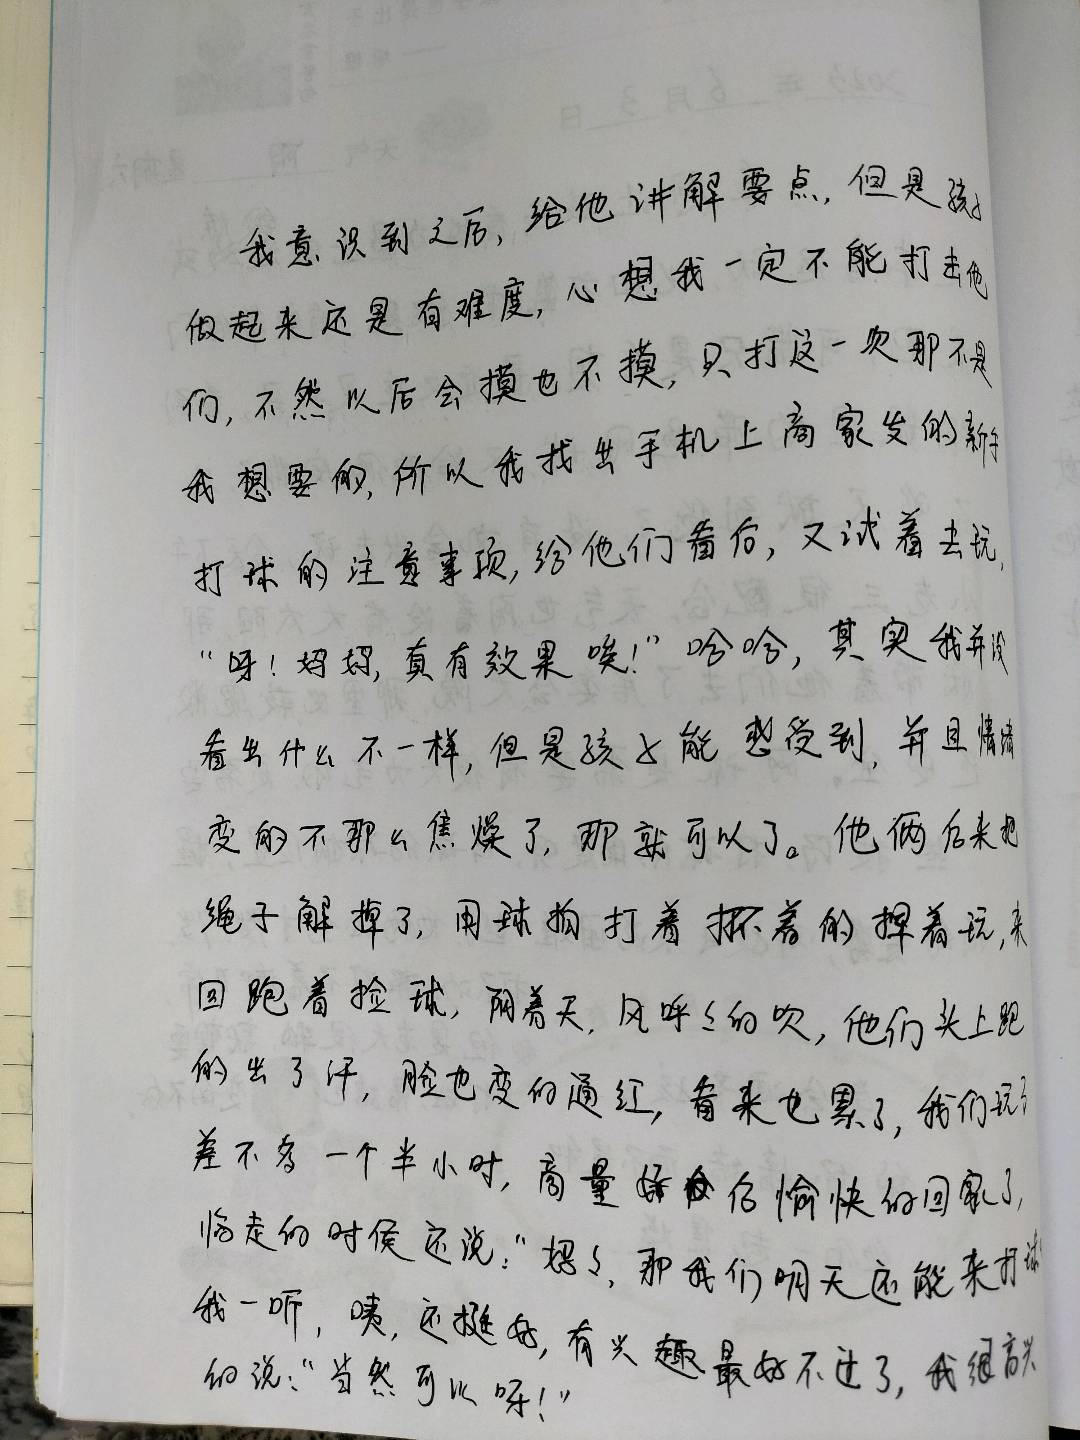 我意识到之后，给他讲解要点，但是孩子
做起来还是有难度，心想我一定不能打击他
们，不然以后会摸也不摸，只打这一次那不是
我想要的，所以我找出手机上商家发的新手
打球的注意事项，给他们看后，又试着去玩，
“呀！妈妈，真有效果唉！”哈哈，其实我并没
看出什么不一样，但是孩子能感受到，并且情绪
变的不那么焦燥了，那就可以了。他俩后来把
绳子解掉了，用球拍打着 着的捍着玩，来
回跑着捡球，阴着天，风呼呼的吹，他们头上跑
的出了汗，脸也变的通红，看来也累了，我们玩了
差不多一个半小时，商量好后愉快的回家了，
临走的时侯还说：“妈妈，那我们明天还能来打球
我一听，咦，还挺好，有兴趣最好不过了，我很高兴
的说：“当然可以呀！”